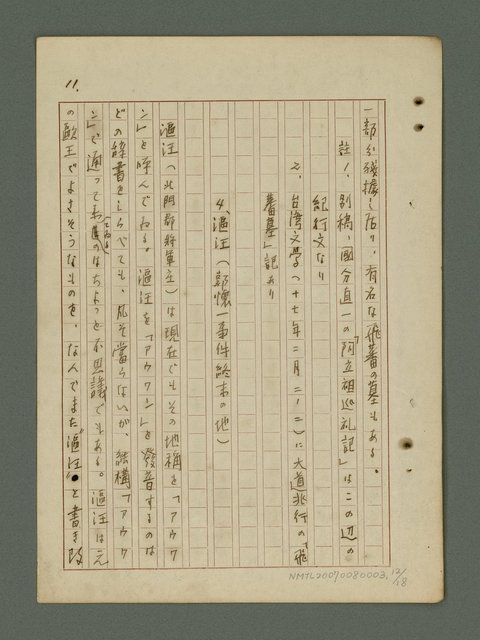 11.
一部分残据し居り、有名な飛蕃の墓もある。
註1、別稿、國分直一の「阿立祖巡礼記」はこの辺の
紀行文なり
2、台湾文学(十七年二月二ノ二)に大道兆行の「飛
蕃墓」記あり
4、漚汪(郭懷一事件終末の地)
漚汪(北門郡将軍庄)は現在でもその地稱を「アウワ
ン」と呼んでゐる。漚汪を「アウワン」と發音するのは
どの辞書をしらべても、凡そ當らないが、結構「アウワ
ン」で通ってゐるのはちょっと不思議でもある。漚汪は元
の歐王でよさそうなものを、なんでまた"漚汪"と書き改
NMTL20070080003. 12/18